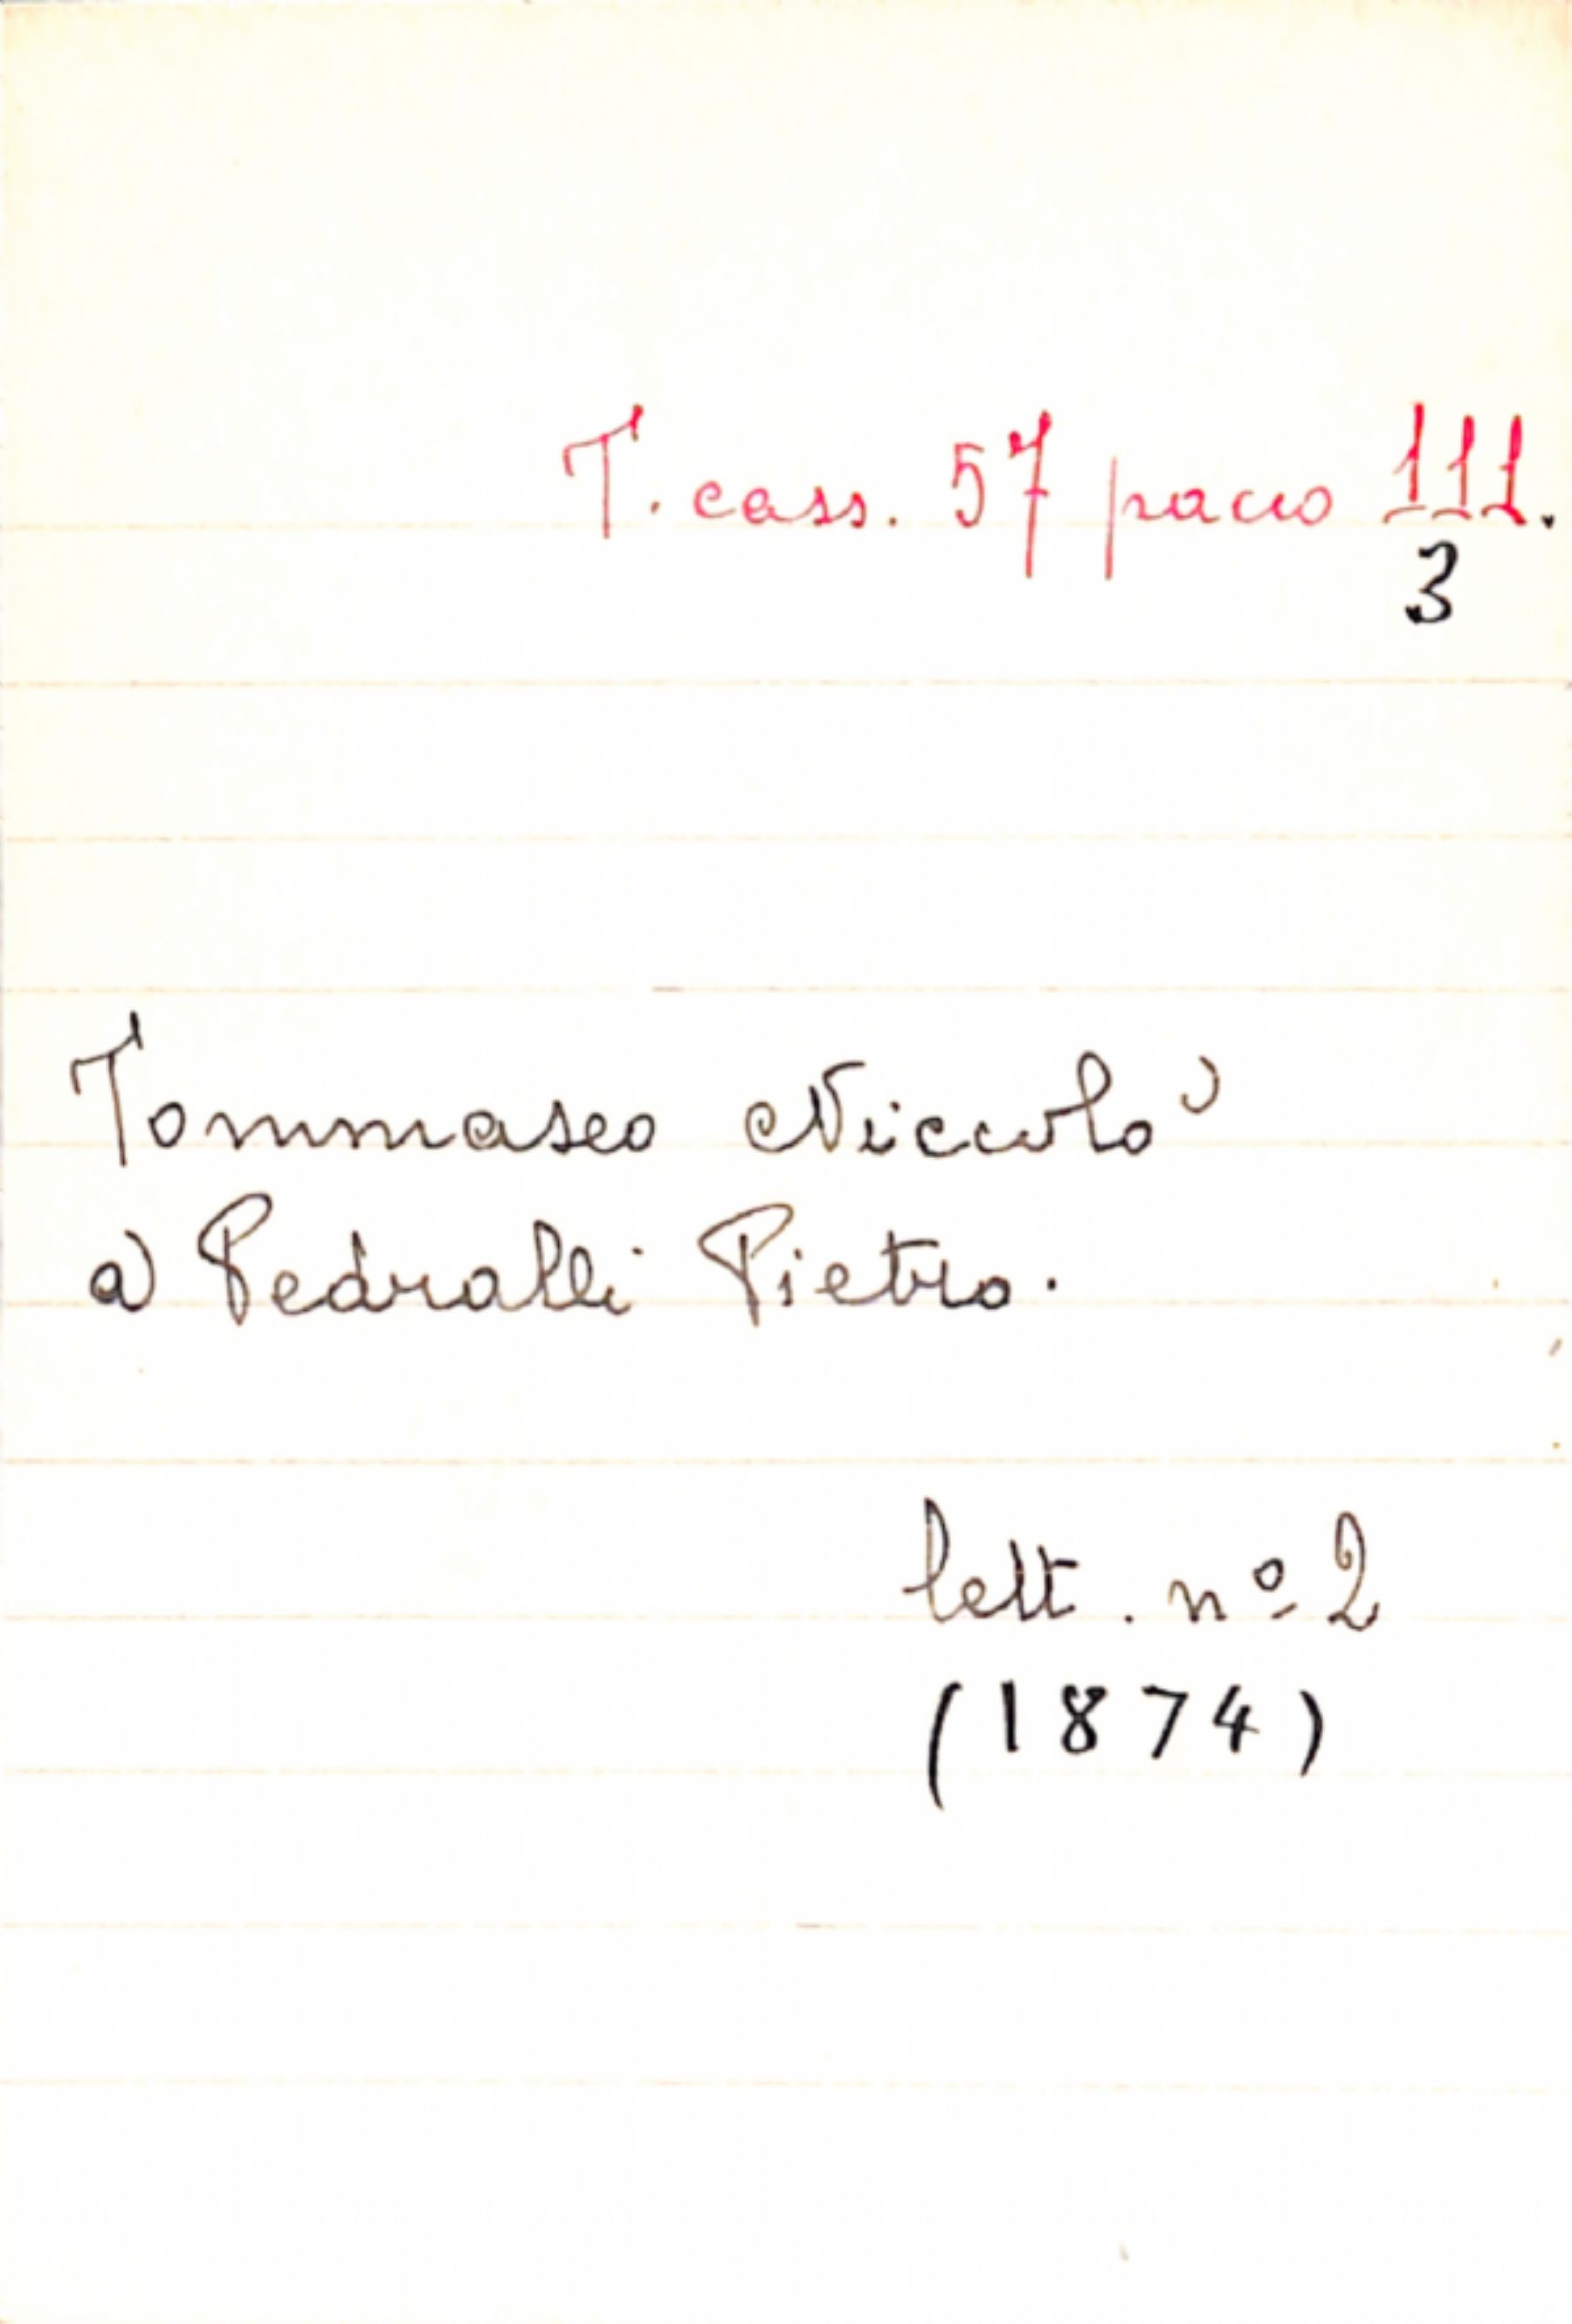 T. cass. 57 pacco 111.
3
Tommaseo Niccolò
a Pedralli Pietro.
lett. nº 2
(1874)